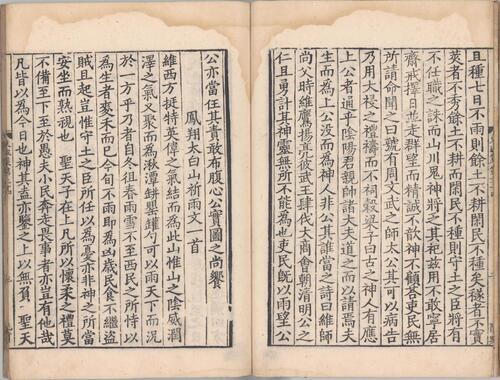 且種七日不雨則餘土不耕閑民不種稺者不實
莢者不秀餘土不耕而閑民不種則守土之臣將有
不任職之誅而山川鬼神將乏其祀茲用不敢寧居
齋戒擇日並走群望而精誠不歆神不顧答吏民無
所請命聞之曰虢有周文武之師太公其可以病告
乃用大祲之禮禱而不祠穀梁子曰古之神人有應
上公者通乎陰陽君親帥諸大夫道之而以請焉夫
生而為上公没而為神人非公其誰當之詩曰維師
尚父時維鷹揚亮彼武王肆伐大商會朝清明公之
仁且勇計其神靈無所不能為也吏民既以雨望公
公亦當任其責敢布腹心公實圖之尚饗
鳳翔太白山祈雨文一首
維西方挺特英偉之氣結而為此山惟山之陰威潤
澤之氣又聚而為湫潭缾罌罐勺可以雨天下而況
於一方乎乃者自冬徂春雨雪不至西民之所恃以
為生者麥禾而已今旬不雨即為凶歲民食不繼盜
賊且起豈惟守土之臣所任以為憂亦非神之所當
安坐而熟視也 聖天子在上凡所以懷柔之禮莫
不備至下至於愚夫小民奔走畏事者亦豈有他哉
凡皆以為今日也神其盍亦鑒之上以無負 聖天